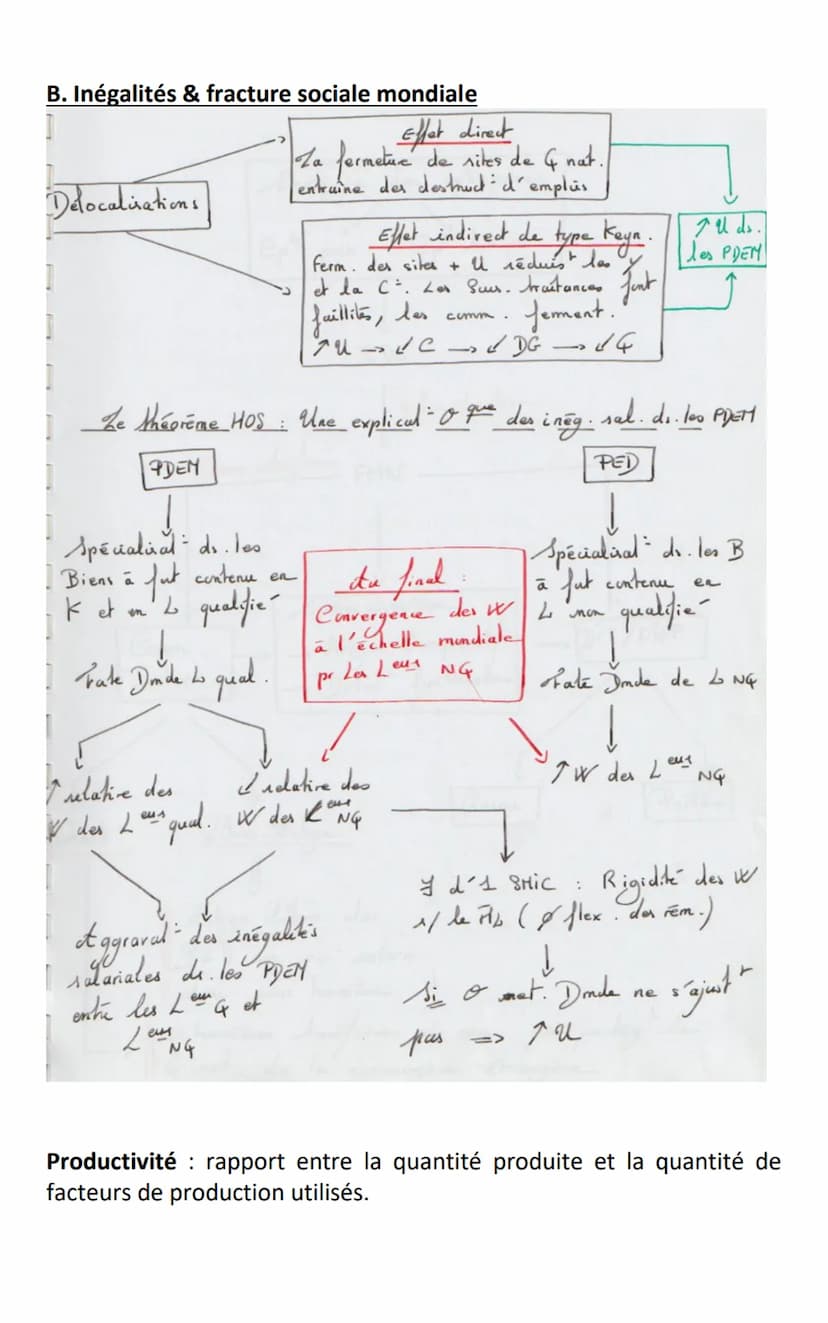 B. Inégalités & fracture sociale mondiale
Effet direct
La fermeture de sites de φ nat.
entraîne des destruct° d'emplois
Délocalisations
Effet indirect de type Keyn.
Ferm. des sites + U réduis^t les Y
et la C°. Les Sous-traitances font
faillites, les comm. ferment.
↑U → ↓C → ↓DG → ↓φ
↑U ds.
les PDEM
Le théorème HOS : Une explicat° θ^que des inég. sal. ds. les PDEM
PDEM
Spécialisat° ds. les
Biens à fut contenu en
K et en L qualifié
Forte Dmde L qual.
↑ relative des
W des L^eurs qual.
↓ relative des
W des L^eurs NQ
Aggravat° des inégalités
salariales ds. les PDEM
entre les L^eurs Q et
L^eurs NQ
Au final :
Convergence des W
à l'échelle mondiale
pr les L^eurs NQ
PED
Spécialisat° ds. les B
à fut contenu en
L non qualifié
Forte Dmde de L NQ
↑W des L^eurs NQ
∃ d'1 SMIC : Rigidité des W
s/ le ML (ø flex. des rém.)
Si O et Dmde ne s'ajust^t
pas => ↑U
Productivité : rapport entre la quantité produite et la quantité de
facteurs de production utilisés.